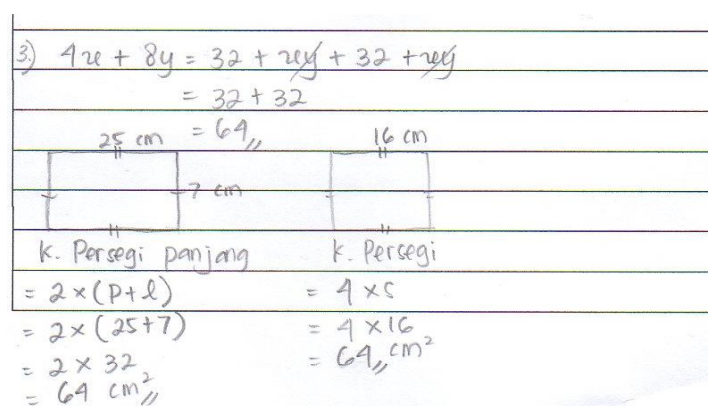 3.) 4x + 8y = 32 + xy + 32 + xy
= 32 + 32
= 64,,
25 cm
7 cm
k. Persegi panjang
= 2 × (P + l)
= 2 × (25 + 7)
= 2 × 32
= 64 cm²,,
16 cm
k. Persegi
= 4 × s
= 4 × 16
= 64,, cm²